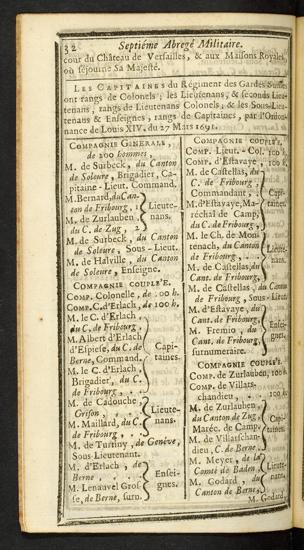 32 Septiéme Abregé Militaire.
cour du Château de Versailles, & aux Maisons Royales,
où séjourne Sa Majesté.
LES CAPITAINES du Régiment des Gardes Suisses
ont rangs de Colonels; les Lieutenans, & seconds Lieu-
tenans, rangs de Lieutenans Colonels, & les Sous-Lieu-
tenans & Enseignes, rangs de Capitaines, par l'Ordon-
nance de Louis XIV. du 27 Mars 1691.
COMPAGNIE GENERALE,
de 200 hommes,
M. de Surbeck, du Canton
de Soleure, Brigadier, Ca-
pitaine-Lieut. Command.
M. Bernard, du Can-
ton de Fribourg,
M. de Zurlauben,
du C. de Zug, 2
Lieute-
nans.
M. de Surbeck, du Canton
de Soleure, Sous-Lieut.
M. de Halville, du Canton
de Soleure, Enseigne.
COMPAGNIE COUPLE'E.
COMP. Colonelle, de 100 h.
COMP. C. d'Erlach, de 100 h.
M. le C. d'Erlach,
du C. de Fribourg,
M. Albert d'Erlach
d'Espiese, du C. de
Berne, Command.
M. le C. d'Erlach,
Brigadier, du C.
de Fribourg,
Capi-
taines.
M. de Cadouche,
Grison,
M. Maillard, du C.
de Fribourg,
Lieute-
nans.
M. de Turtiny, de Genéve,
Sous-Lieutenant.
M. d'Erlach, de
Berne,
M. Lenauvel Gros-
se, de Berne, surn.
Ensei-
gnes.
COMPAGNIE COUPLE'E.
COMP. Lieut.-Col. 100 h.
COMP. d'Estavaye, 100 h.
M. de Castellas, du
C. de Fribourg,
Commandant,
M. d'Estavaye, Ma-
réchal de Camp,
du C. de Fribourg,
Capi-
taines.
M. le Ch. de Mon-
tenach, du Canton
de Fribourg,
M. de Castellas, du
Cant. de Fribourg,
Lieute-
nans.
M. de Castellas, du Canton
de Fribourg, Sous-Lieut.
M. d'Estavaye, du
Cant. de Fribourg,
M. Fremio, du
Cant. de Fribourg,
surnumeraire.
Ensei-
gnes.
COMPAGNIE COUPLE'E.
COMP. de Zurlauben, 100 h.
COMP. de Villars-
chandieu, 100 h.
M. de Zurlauben,
du Canton de Zug,
Maréc. de Camp,
M. de Villarschan-
dieu, C. de Berne,
Capi-
taines.
M. Meyer, de la
Comté de Baden,
M. Godard, du
Canton de Berne,
Lieute-
nans.
M. Godard,